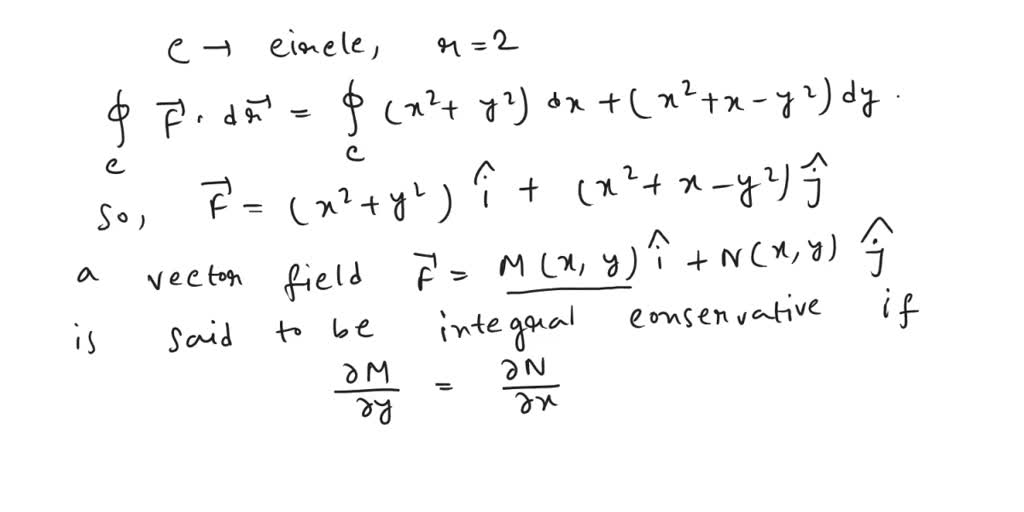 C → circle, r = 2
∮_C F⃗ . dr⃗ = ∮_C (x² + y²) dx + (x² + x - y²) dy .
So, F⃗ = (x² + y²) î + (x² + x - y²) ĵ
a vector field F⃗ = M(x, y) î + N(x, y) ĵ
is said to be integral conservative if
∂M/∂y = ∂N/∂x